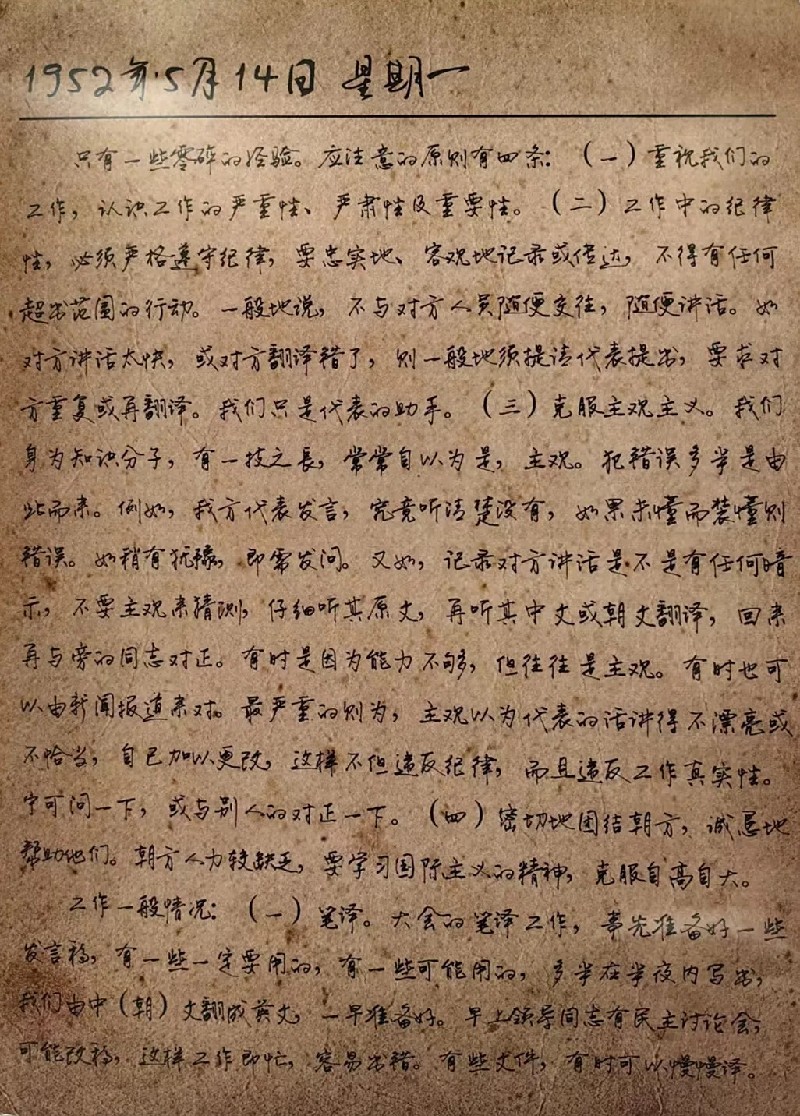 1952年·5月14日 星期一
只有一些零碎的经验。应注意的原则有四条：（一）重视我们的
工作，认识工作的严重性、严肃性及重要性。（二）工作中的纪律
性，必须严格遵守纪律，要忠实地、客观地记录或传达，不得有任何
超出范围的行动。一般地说，不与对方人员随便交往，随便讲话。如
对方讲话太快，或对方翻译错了，则一般地须提请代表提出，要求对
方重复或再翻译。我们只是代表的助手。（三）克服主观主义。我们
身为知识分子，有一技之長，常常自以为是，主观。犯错误多半是由
此而来。例如，我方代表发言，究竟听清楚没有，如果未懂而装懂则
错误。如稍有犹豫，即需发问。又如，记录对方讲话是不是有任何暗
示，不要主观来猜测，仔细听其原文，再听其中文或朝文翻译，回来
再与旁的同志对正。有时是因为能力不够，但往往是主观。有时也可
以由新闻报道来对。最严重的则为，主观以为代表的话讲得不漂亮或
不恰当，自己加以更改，这样不但违反纪律，而且违反工作真实性。
宁可问一下，或与别人的对正一下。（四）密切地团结朝方，诚恳地
帮助他们。朝方人力较缺乏，要学习国际主义的精神，克服自高自大。
工作一般情况：（一）笔译。大会的笔译工作，事先准备好一些
发言稿，有一些一定要用的，有一些可能用的，多半在半夜内写出，
我们由中（朝）文翻成英文，一早准备好。早上领导同志有民主讨论会，
可能改稿，这样工作即忙，容易出错。有些文件，有时可以慢慢译。